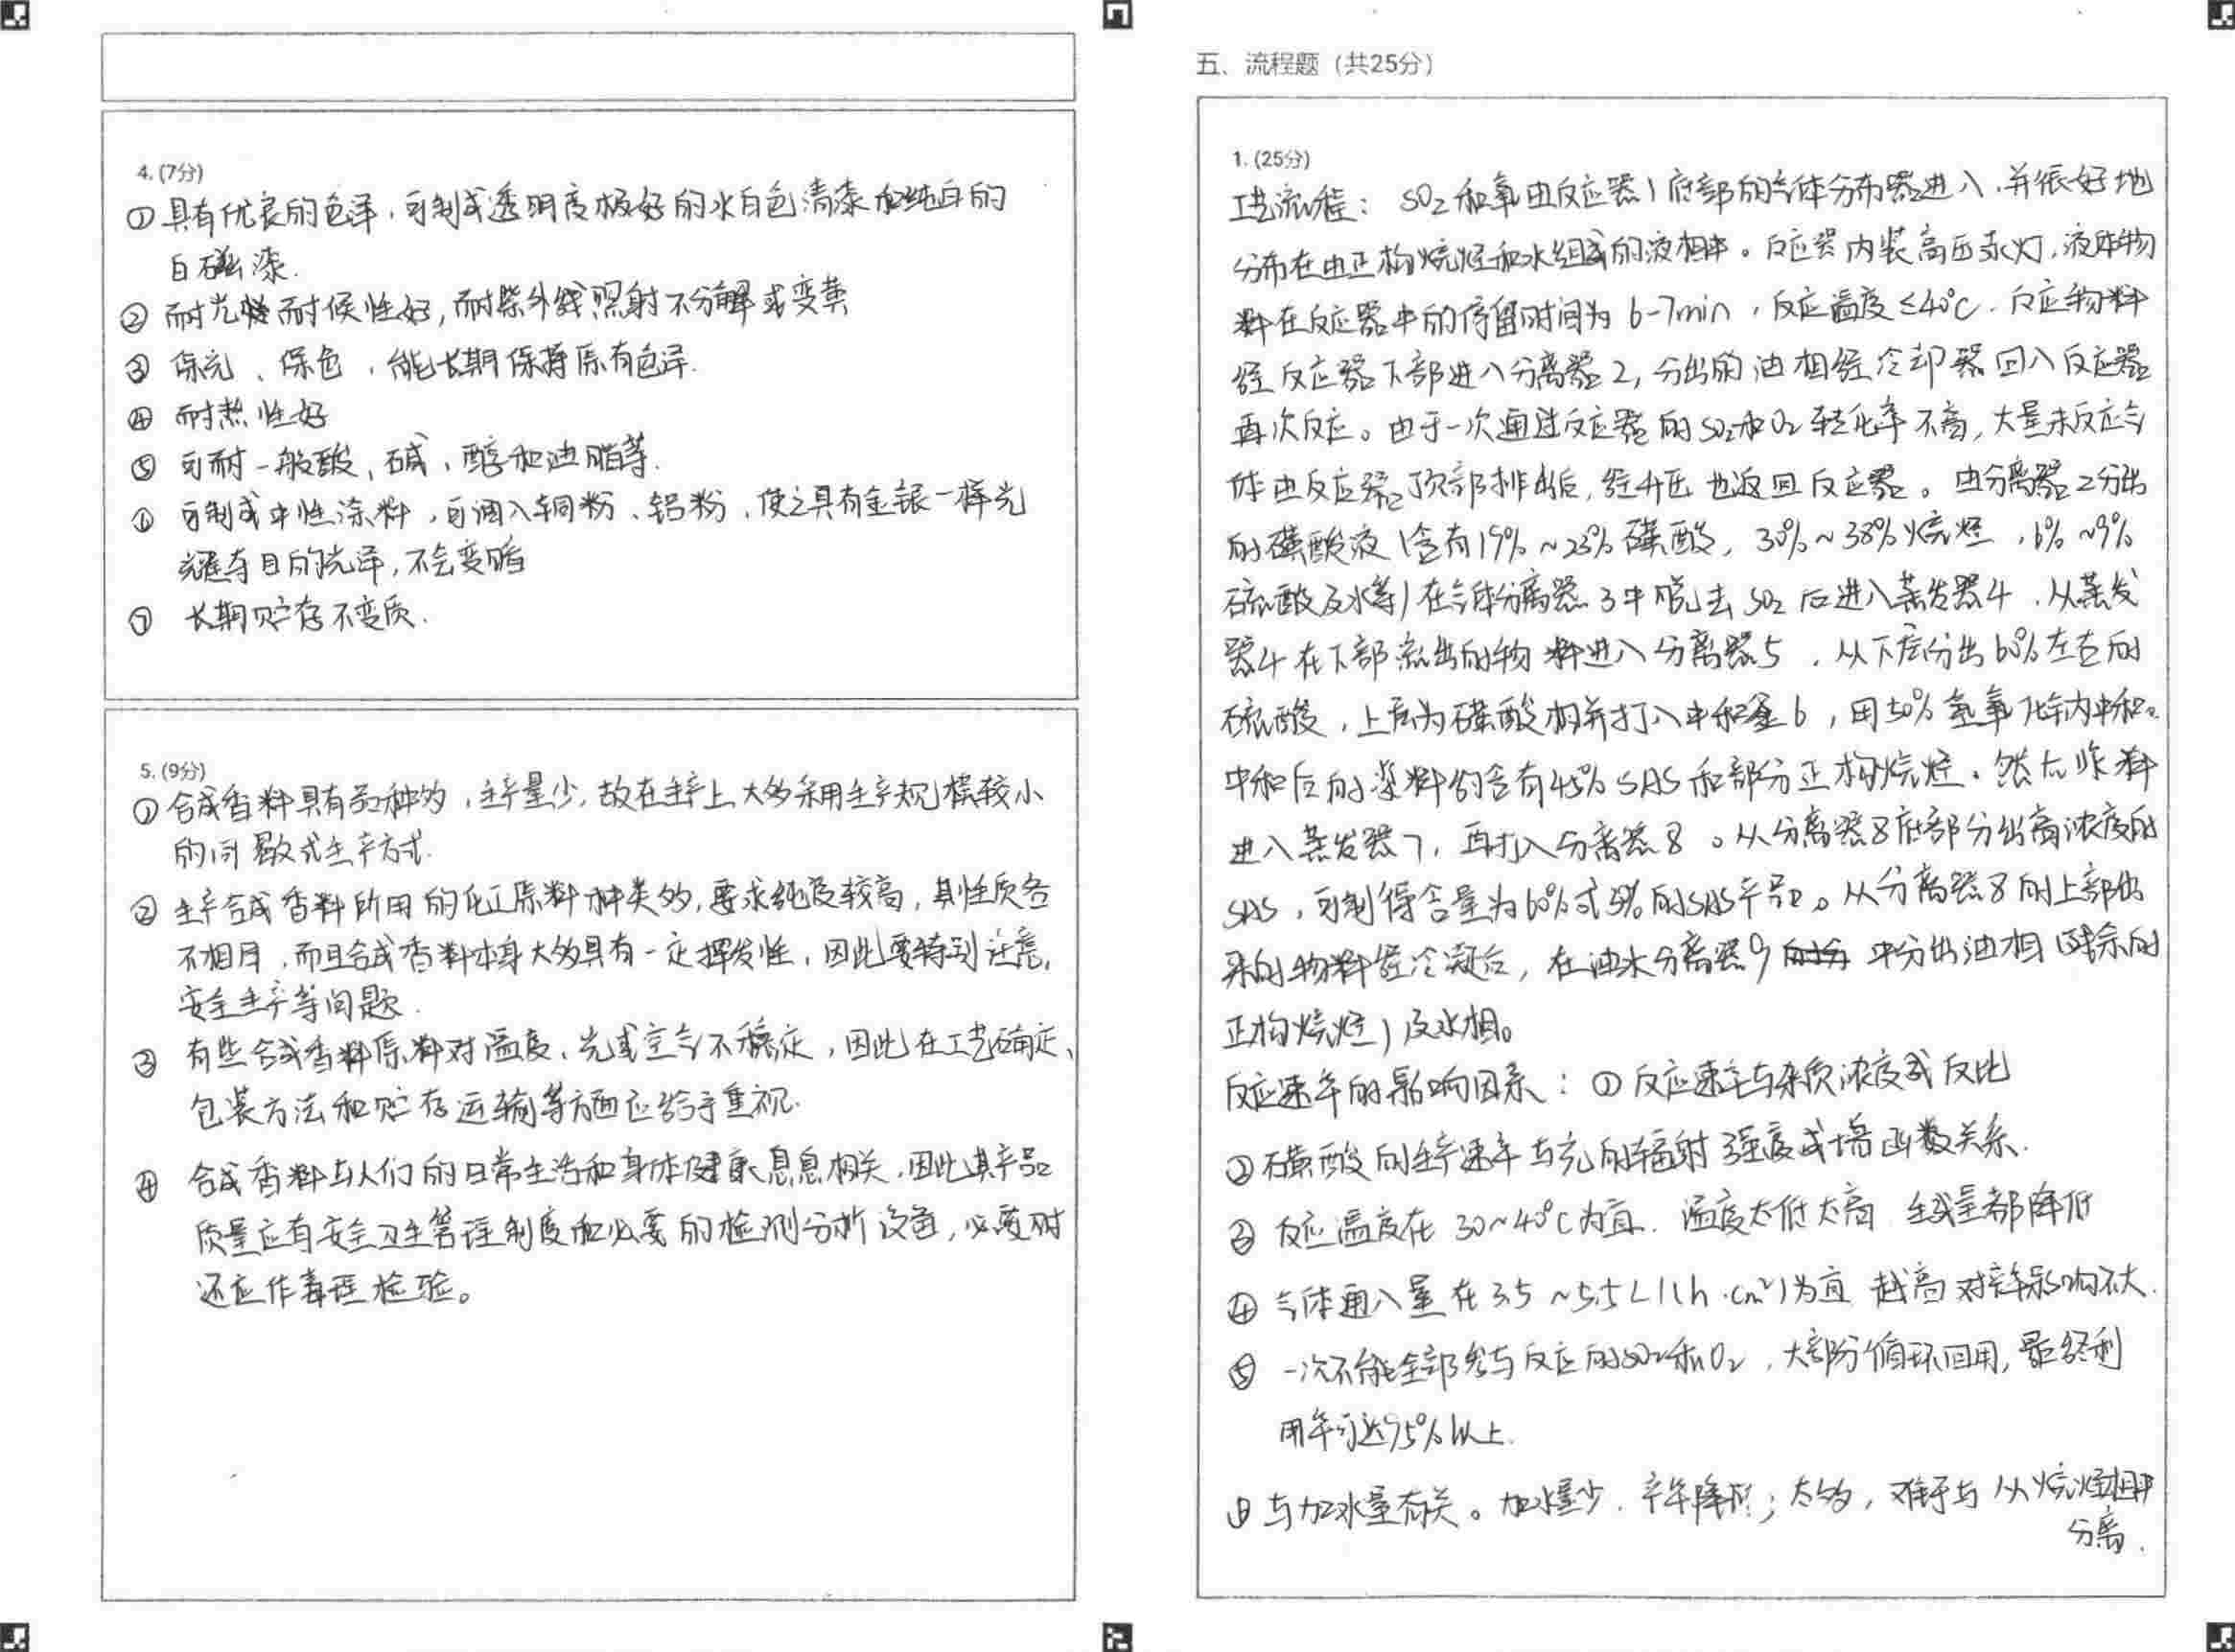 4. (7分)
①具有优良的色泽，可制成透明度极好的水白色清漆和纯白的
白磁漆.
② 耐光 耐候性好，耐紫外线照射不分解或变黄
③ 保光、保色，能长期保持原有色泽.
④ 耐热性好
⑤ 可耐一般酸、碱、醇和油脂等.
⑥ 可制成中性涂料，可调入铜粉、铝粉，使之具有金银一样光
耀夺目的光泽，不会变暗
⑦ 长期贮存不变质.
5. (9分)
① 合成香料具有品种多，生产量少，故在生产上大多采用生产规模较小
的间歇式生产方式.
② 生产合成香料所用的化工原料种类多，要求纯度较高，其性质各
不相同，而且合成香料本身大多具有一定挥发性，因此要特别注意，
安全生产等问题.
③ 有些合成香料原料对温度、光或空气不稳定，因此在工艺确定、
包装方法和贮存运输等方面应给予重视.
④ 合成香料与人们的日常生活和身体健康息息相关，因此其产品
质量应有安全卫生管理制度和必要的检测分析设备，必要时
还应作毒理检验。
五、流程题（共25分）
1. (25分)
工艺流程：SO₂和氧由反应器1底部的气体分布器进入，并很好地
分布在由正构烷烃和水组成的液相中。反应器内装高压汞灯，液体物
料在反应器中的停留时间为6-7min，反应温度≤40℃.反应物料
经反应器下部进入分离器2，分出的油相经冷却器回入反应器
再次反应。由于一次通过反应器的SO₂和O₂转化率不高，大量未反应气
体由反应器顶部排出后，经升压也返回反应器。由分离器2分出
的磺酸液（含有19%~23%磺酸，30%~38%烷烃，6%~9%
硫酸及水等）在气体分离器3中脱去SO₂后进入蒸发器4，从蒸发
器4在下部流出的物料进入分离器5，从下层分出60%左右的
硫酸，上层为磺酸相并打入中和釜6，用50%氢氧化钠中和。
中和后的浆料约含有45%SAS和部分正构烷烃。然后将料
进入蒸发器7，再打入分离器8。从分离器8底部分出高浓度的
SAS，可制得含量为60%或 的SAS产品。从分离器8的上部出
来的物料经冷凝后，在油水分离器9 中分出油相（残余的
正构烷烃）及水相。
反应速率的影响因素：① 反应速率与杂质浓度成反比
②磺酸的生产速率与光的辐射强度成增函数关系.
③ 反应温度在30~40℃为宜. 温度太低太高 生成量都降低
④ 气体通入量在3.5~5.5L/(h·cm²)为宜 越高对产率影响不大.
⑤ 一次不能全部参与反应的SO₂和O₂，大部分循环回用，最终利
用率可达95%以上.
⑥与加水量有关。加水量少，产率降低；太多，难于与从烷烃相中
分离.